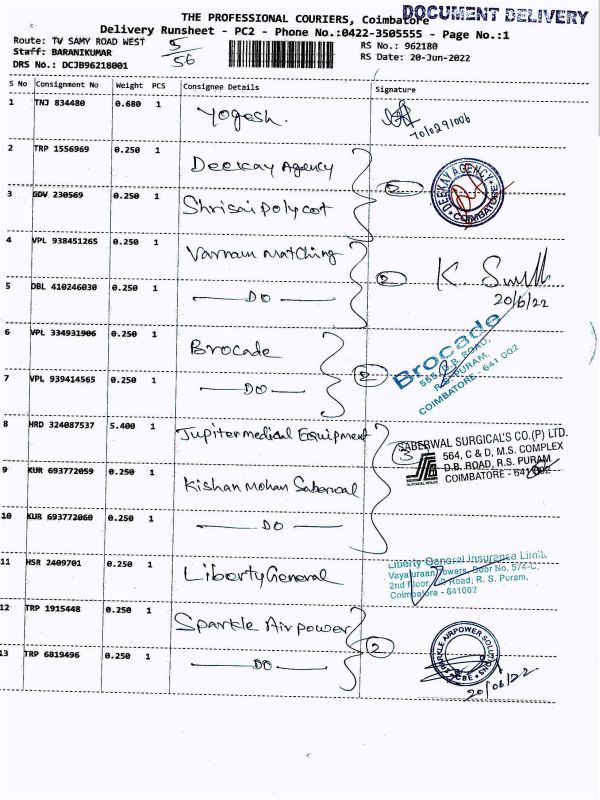 DOCUMENT DELIVERY
THE PROFESSIONAL COURIERS, Coimbatore
Delivery Runsheet - PC2 - Phone No.:0422-3505555 - Page No.:1
Route: TV SAMY ROAD WEST
Staff: BARANIKUMAR
DRS No.: DCJB96218001
5/56
RS No.: 962180
RS Date: 20-Jun-2022
S No Consignment No Weight PCS Consignee Details Signature
1 TNJ 834480 0.680 1 Yogesh.
7010291006
2 TRP 1556969 0.250 1 Deekay Agency
DEEKAY AGENCY
COIMBATORE
3 GDV 230569 0.250 1 Shrisai Polycot
4 VPL 938451265 0.250 1 Varnam Matching
5 DBL 410246030 0.250 1 DO
2
20/6/22
6 VPL 334931906 0.250 1 Brocade
7 VPL 939414565 0.250 1 DO
2
Brocade
555, D.B. ROAD,
R.S. PURAM,
COIMBATORE - 641 002
8 HRD 324087537 5.400 1 Jupiter medical Equipment
9 KUR 693772059 0.250 1 Kishan Mohan Saberwal
10 KUR 693772060 0.250 1 DO
3
SABERWAL SURGICAL'S CO.(P) LTD.
564, C & D, M.S. COMPLEX
D.B. ROAD, R.S. PURAM
COIMBATORE - 641 002
SURGICAL HOUSE
11 HSR 2409701 0.250 1 Liberty General
Liberty General Insurance Limit
2nd Floor Road, R. S. Puram,
Coimbatore - 641002
12 TRP 1915448 0.250 1 Sparkle Airpower
13 TRP 6819496 0.250 1 DO
2
SPARKLE AIRPOWER SOLUTIONS
CBE
20/06/22